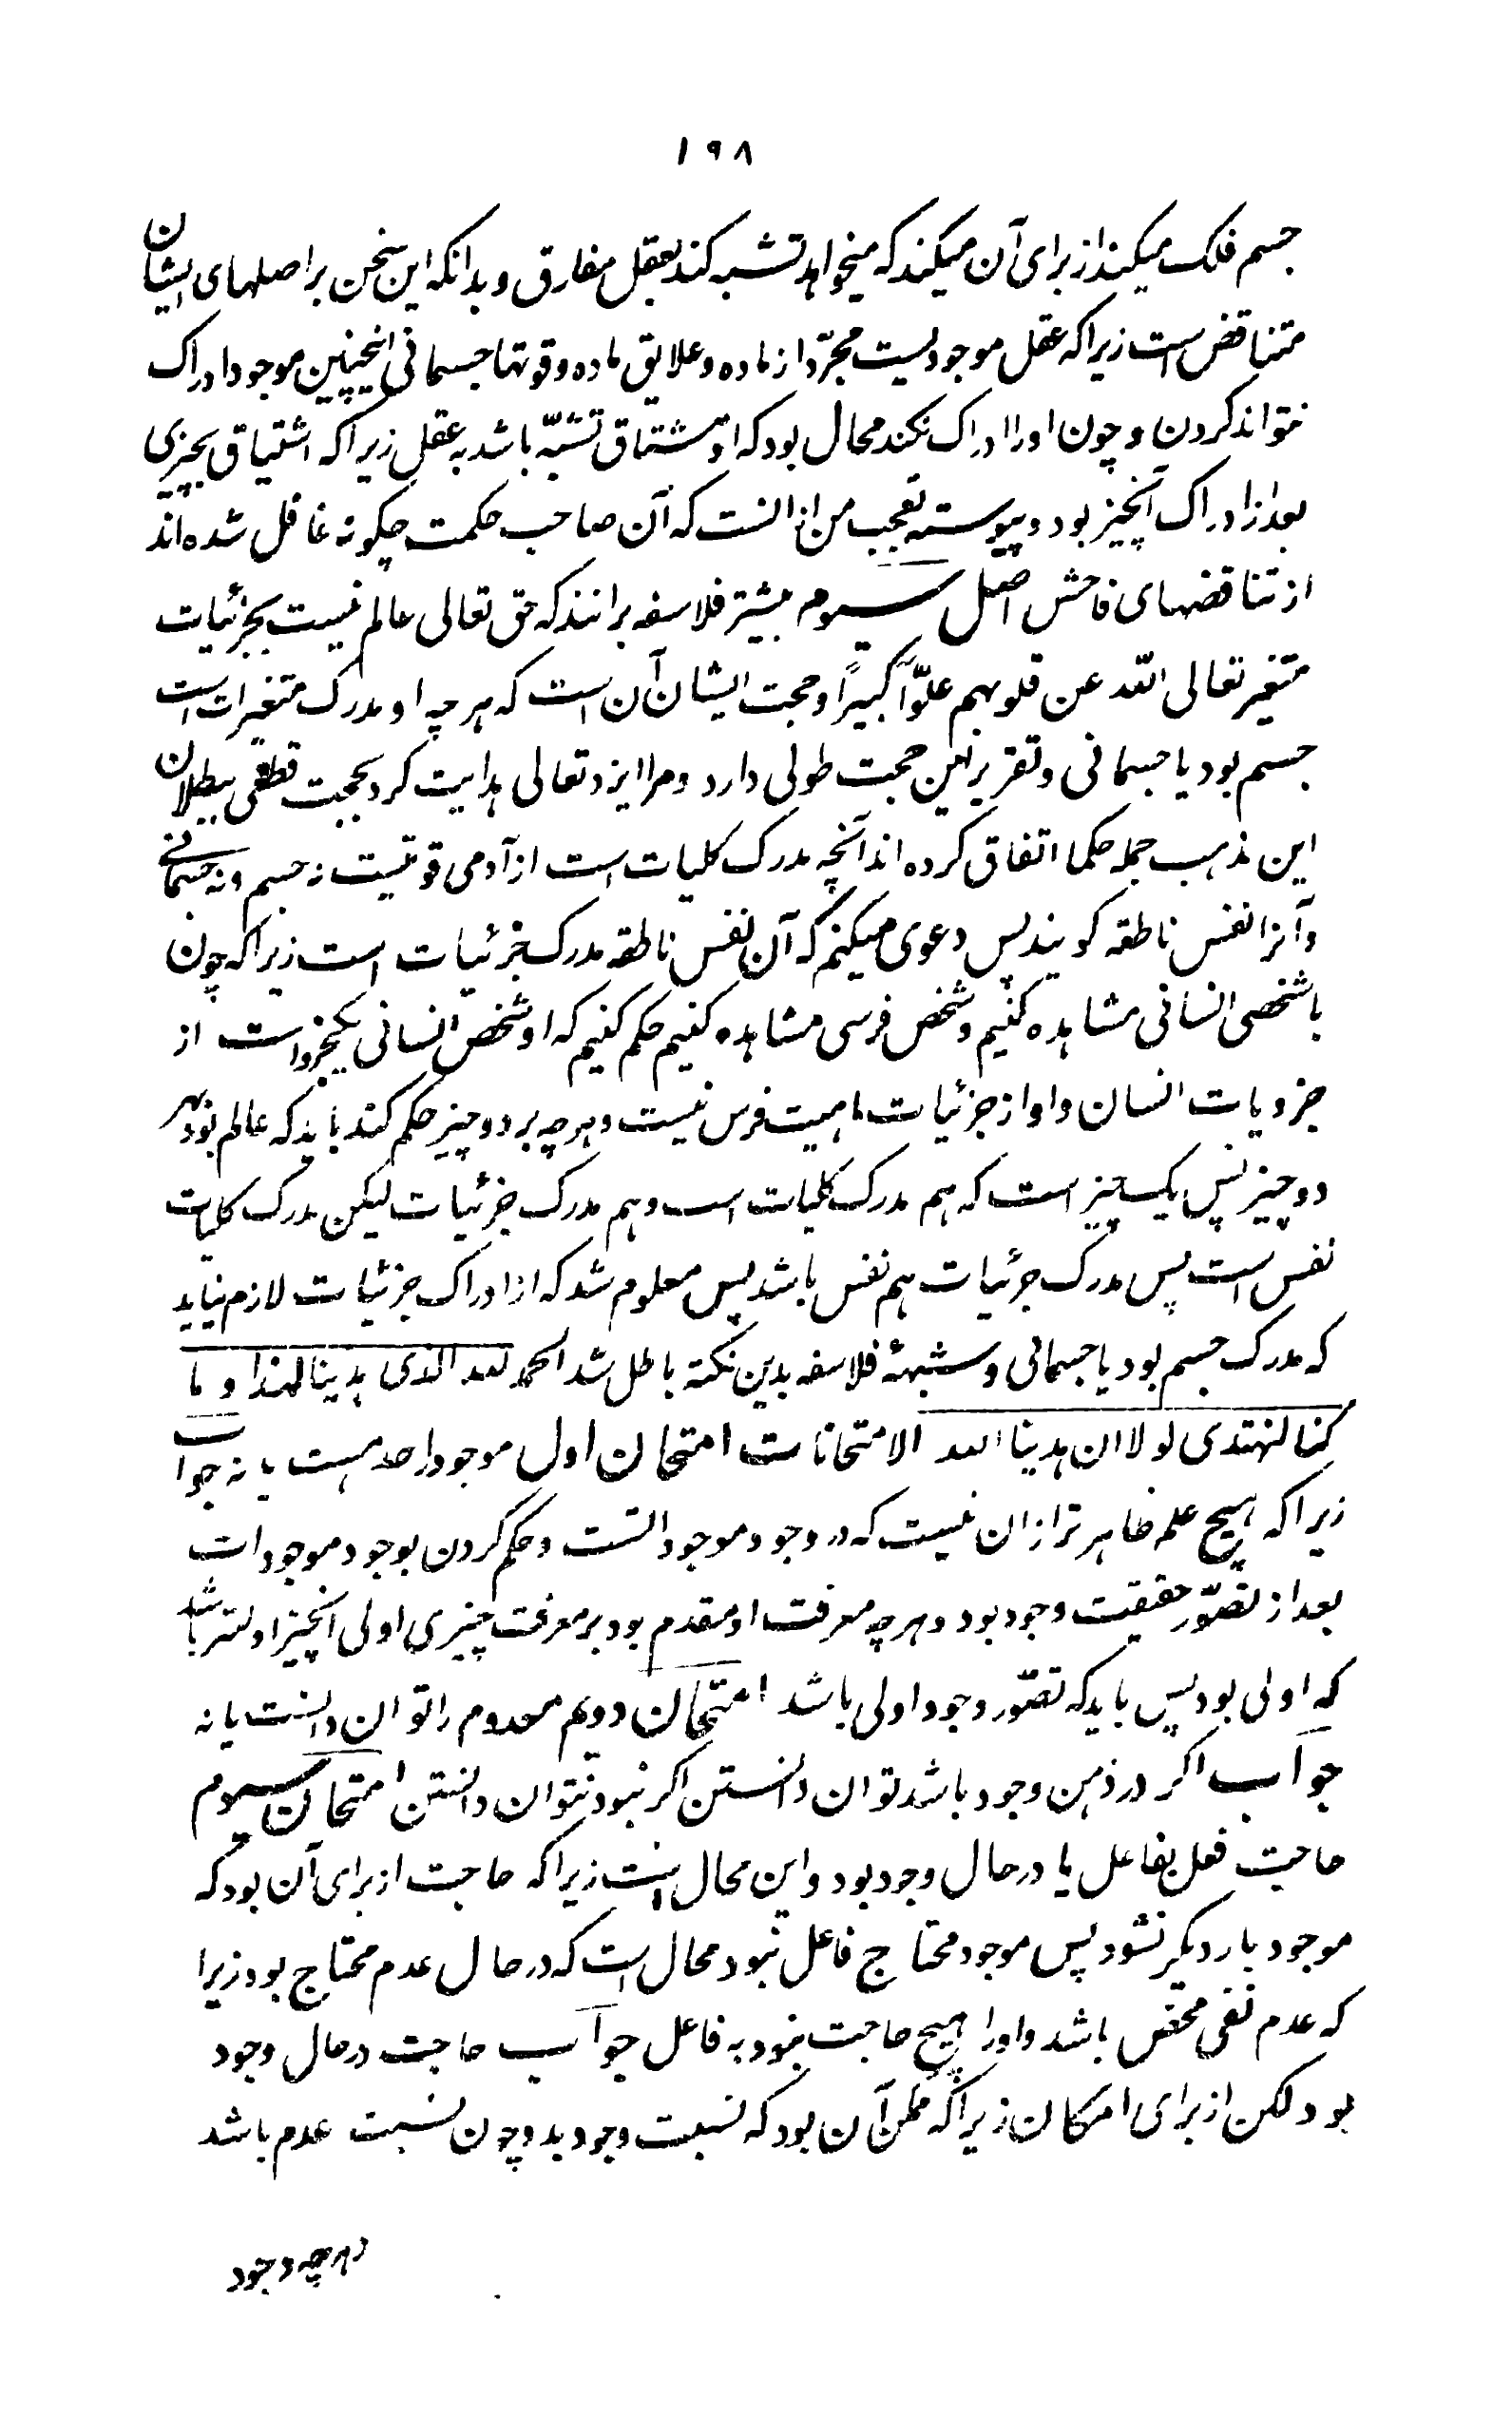 ۱۹۸
جسم فلک میکند از برای آن میکند که میخواهد تشبه کند بعقل مفارق و بدانکه این سخن بر اصلهای ایشان
متناقض است زیرا که عقل موجودیست مجرّد از ماده و علایق ماده و قوتها جسمانی اینچنین موجود ادراک
نتواند کردن و چون او را ادراک نکند محال بود که او مشتاق تشبّه باشد به عقل زیرا که اشتیاق بچیزی
بعد از ادراک آنچیز بود و پیوسته تعجب من از انست که آن صاحب حکمت چکونه غافل شده اند
از تناقضهای فاحش اصل سیوم بیشتر فلاسفه برانند که حق تعالی عالم نیست بجزئیات
متغیر تعالی اللّه عن قلوبهم علوّاً کبیراً و حجت ایشان آن است که هر چه او مدرک متغیرات است
جسم بود یا جسمانی و تقریر این حجت طولی دارد و مرا ایزد تعالی هدایت کرد بحجت قطعی ببطلان
این مذهب جمله حکما اتفاق کرده اند آنچه مدرک کلیات است از آدمی قوتیست نه جسم و نه جسمانی
و آنرا نفس ناطقه کویند پس دعوی میکنم که آن نفس ناطقه مدرک جزئیات است زیرا که چون
با شخصی انسانی مشاهده کنیم و شخص فرسی مشاهده کنیم حکم کنیم که او شخص انسانی یکجزو است از
جزویات انسان و او از جزئیات ماهیت فرس نیست و هر چه بر دو چیز حکم کند باید که عالم بود بهر
دو چیز پس یک چیز است که هم مدرک کلیات است و هم مدرک جزئیات لیکن مدرک کلیات
نفس است پس مدرک جزئیات هم نفس باشد پس معلوم شد که از ادراک جزئیات لازم نیاید
که مدرک جسم بود یا جسمانی و شبههٔ فلاسفه بدین نکته باطل شد الحمد لله الذی هدینا لهذا و ما
کنا لنهتدی لولا ان هدینا الله الامتحانات امتحان اول موجود واحد هست یا نه جواب
زیرا که هیچ علم ظاهرتر از ان نیست که در وجود موجود دانست و حکم کردن بوجود موجودات
بعد از تصوّر حقیقت وجود بود و هر چه معرفت او مقدم بود بر معرفت چیزی اولی آنچیز اولیتر باشد
که اولی بود پس باید که تصوّر وجود اولی باشد امتحان دویم معدوم را توان دانست یا نه
جواب اکر در ذهن وجود باشد توان دانستن اکر نبود نتوان دانستن امتحان سیوم
حاجت فعل بفاعل یا در حال وجود بود و این محال است زیرا که حاجت از برای آن بود که
موجود بار دیکر نشود پس موجود محتاج فاعل نبود محال است که در حال عدم محتاج بود زیرا
که عدم نفی محض باشد و او را هیچ حاجت نبود به فاعل جواب حاجت در حال وجود
بود لکن از برای امکان زیرا که ممکن آن بود که نسبت وجود بدو چون نسبت عدم باشد
و هر چه وجود